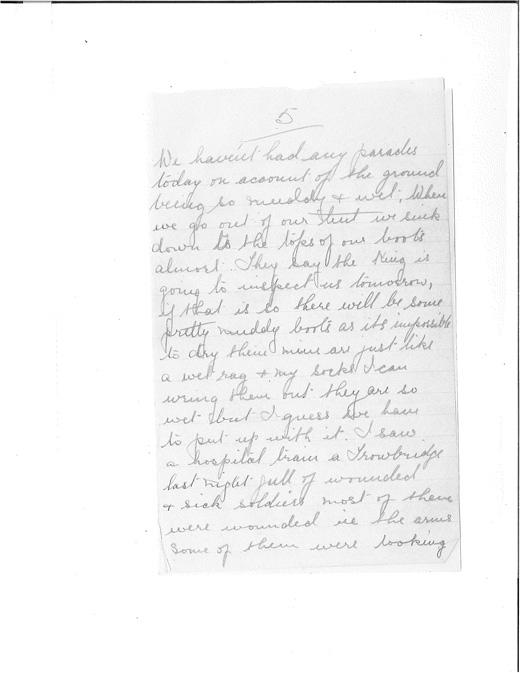 5
We haven't had any parades
today on account of the ground
being so muddy & wet, When
we go out of our Hut we sink
down to the tops of our boots
almost. They say the King is
going to inspect us tomorrow,
if that is so there will be some
pretty muddy boots as its impossible
to dry them mine are just like
a wet rag & my socks I can
wring them out they are so
wet but I guess we have
to put up with it. I saw
a hospital train a Trowbridge
last night full of wounded
& sick soldiers most of them
were wounded in the arms
some of them were looking